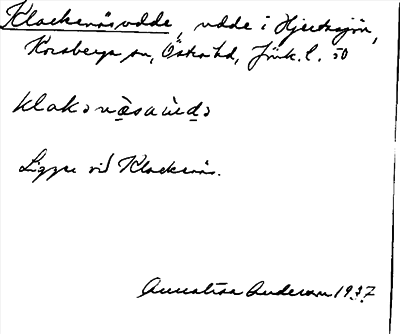 Klackenäsudde, udde i Hjertsjön,
Korsberga sn, Östra hd, Jönk. l. 50
klakənæ̀saùdə
Ligger vid Klackenäs.
Annalisa Andersson 1937